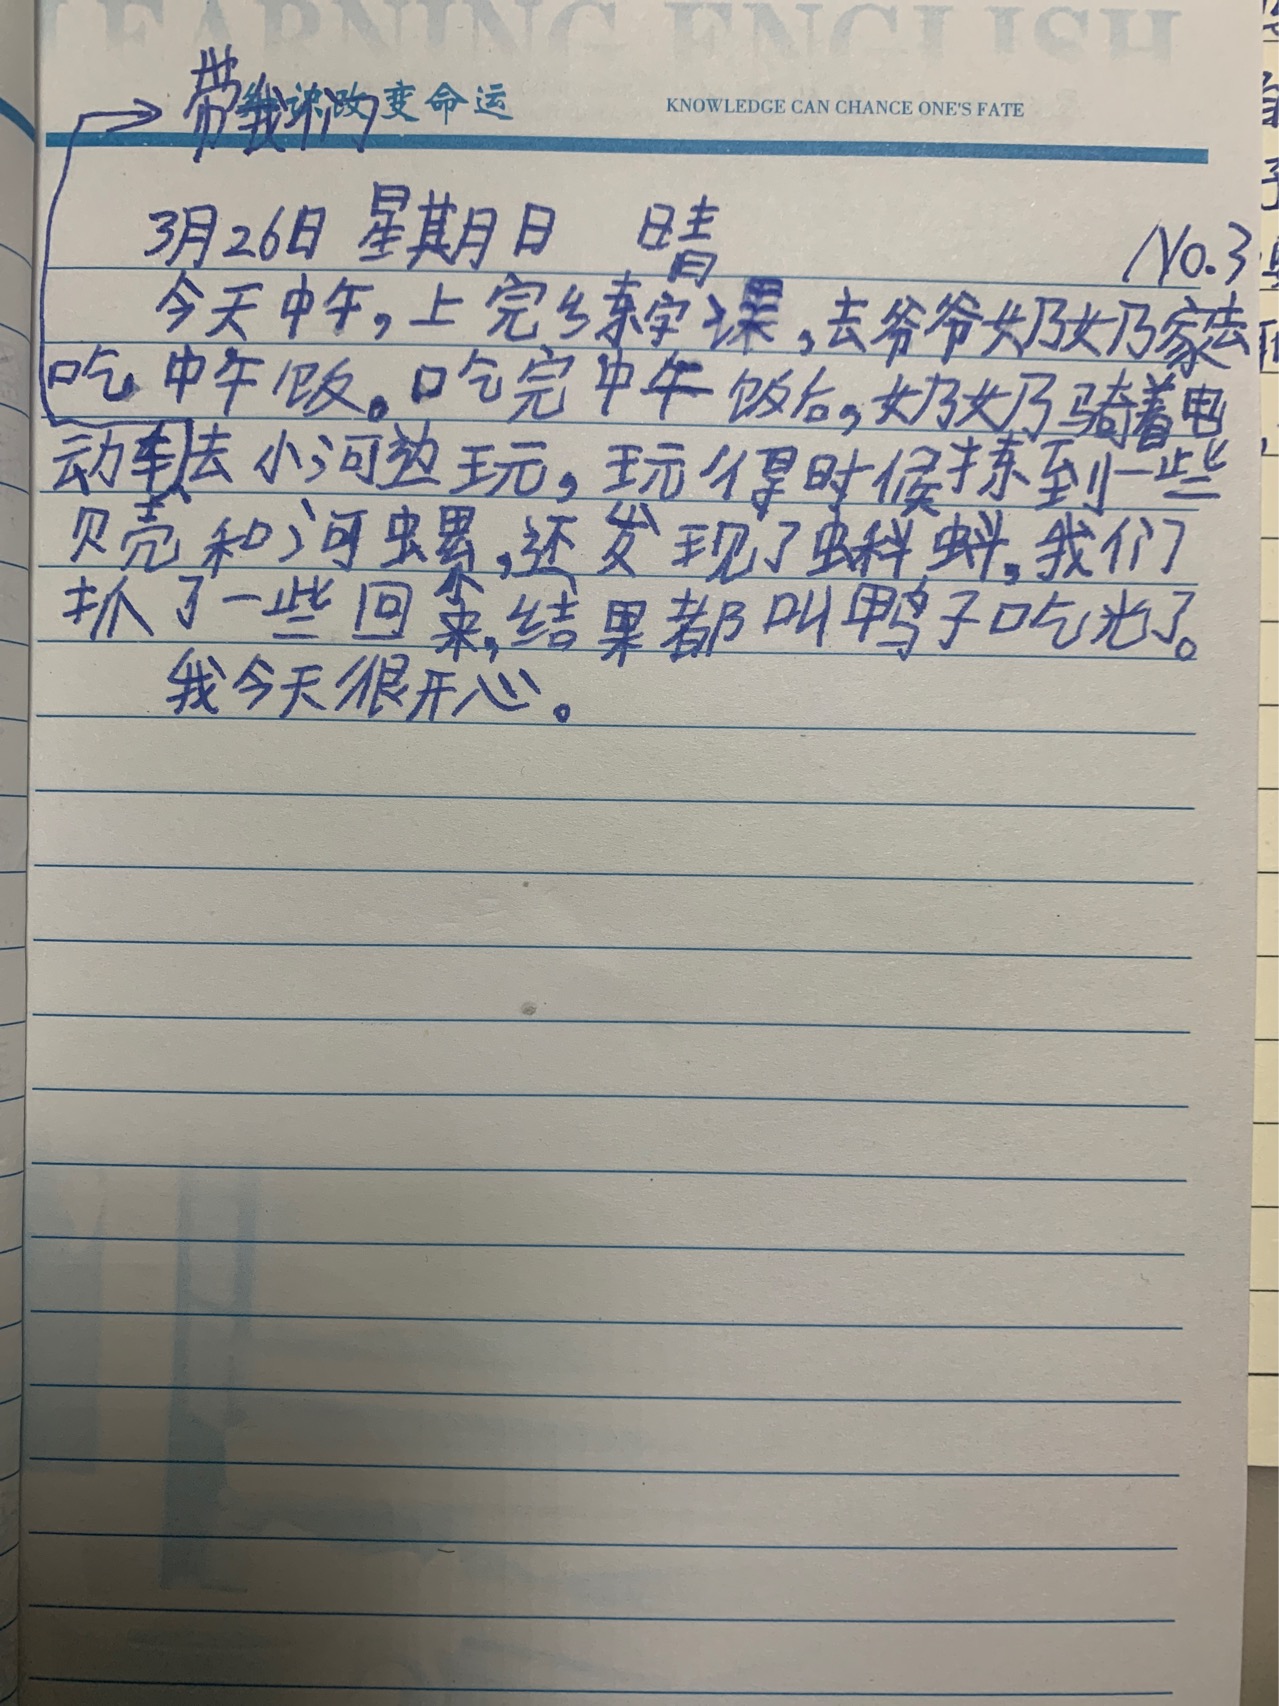 LEARNING ENGLISH
带我们
知识改变命运 KNOWLEDGE CAN CHANCE ONE'S FATE
3月26日 星期日 晴 No.3
今天中午，上完练字课，去爷爷奶奶家去
吃中午饭。吃完中午饭后，奶奶骑着电
动车去小河边玩，玩得时候拣到一些
贝壳和河螺，还发现了蝌蚪。我们
抓了一些回来，结果都叫鸭子吃光了。
我今天很开心。